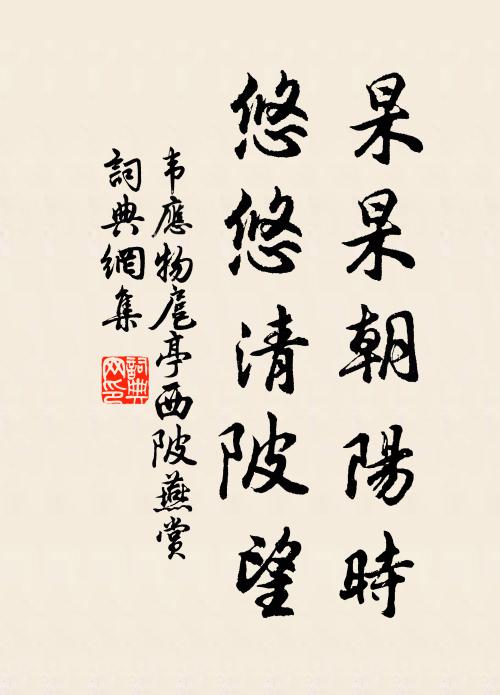 杲杲朝陽時
悠悠清陂望
韦應物扈亭西陂燕賞
詞典網集
詞典
网印